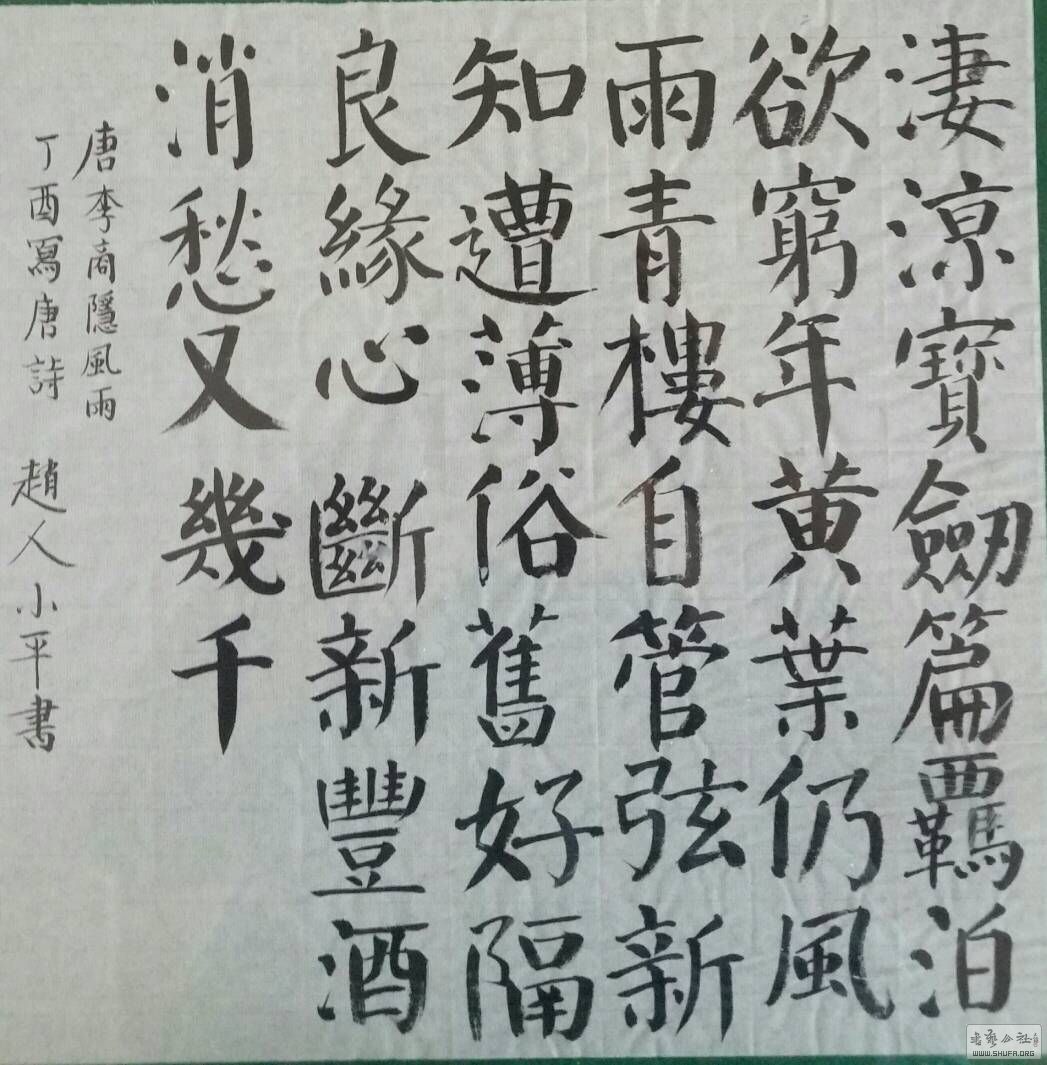 淒涼寶劒篇覉泊
欲窮年黄葉仍風
雨青樓自管弦新
知遭薄俗舊好隔
良緣心斷新豐酒
消愁又幾千
唐李商隱風雨
丁酉寫唐詩 趙人小平書
书艺公社
WWW.SHUFA.ORG